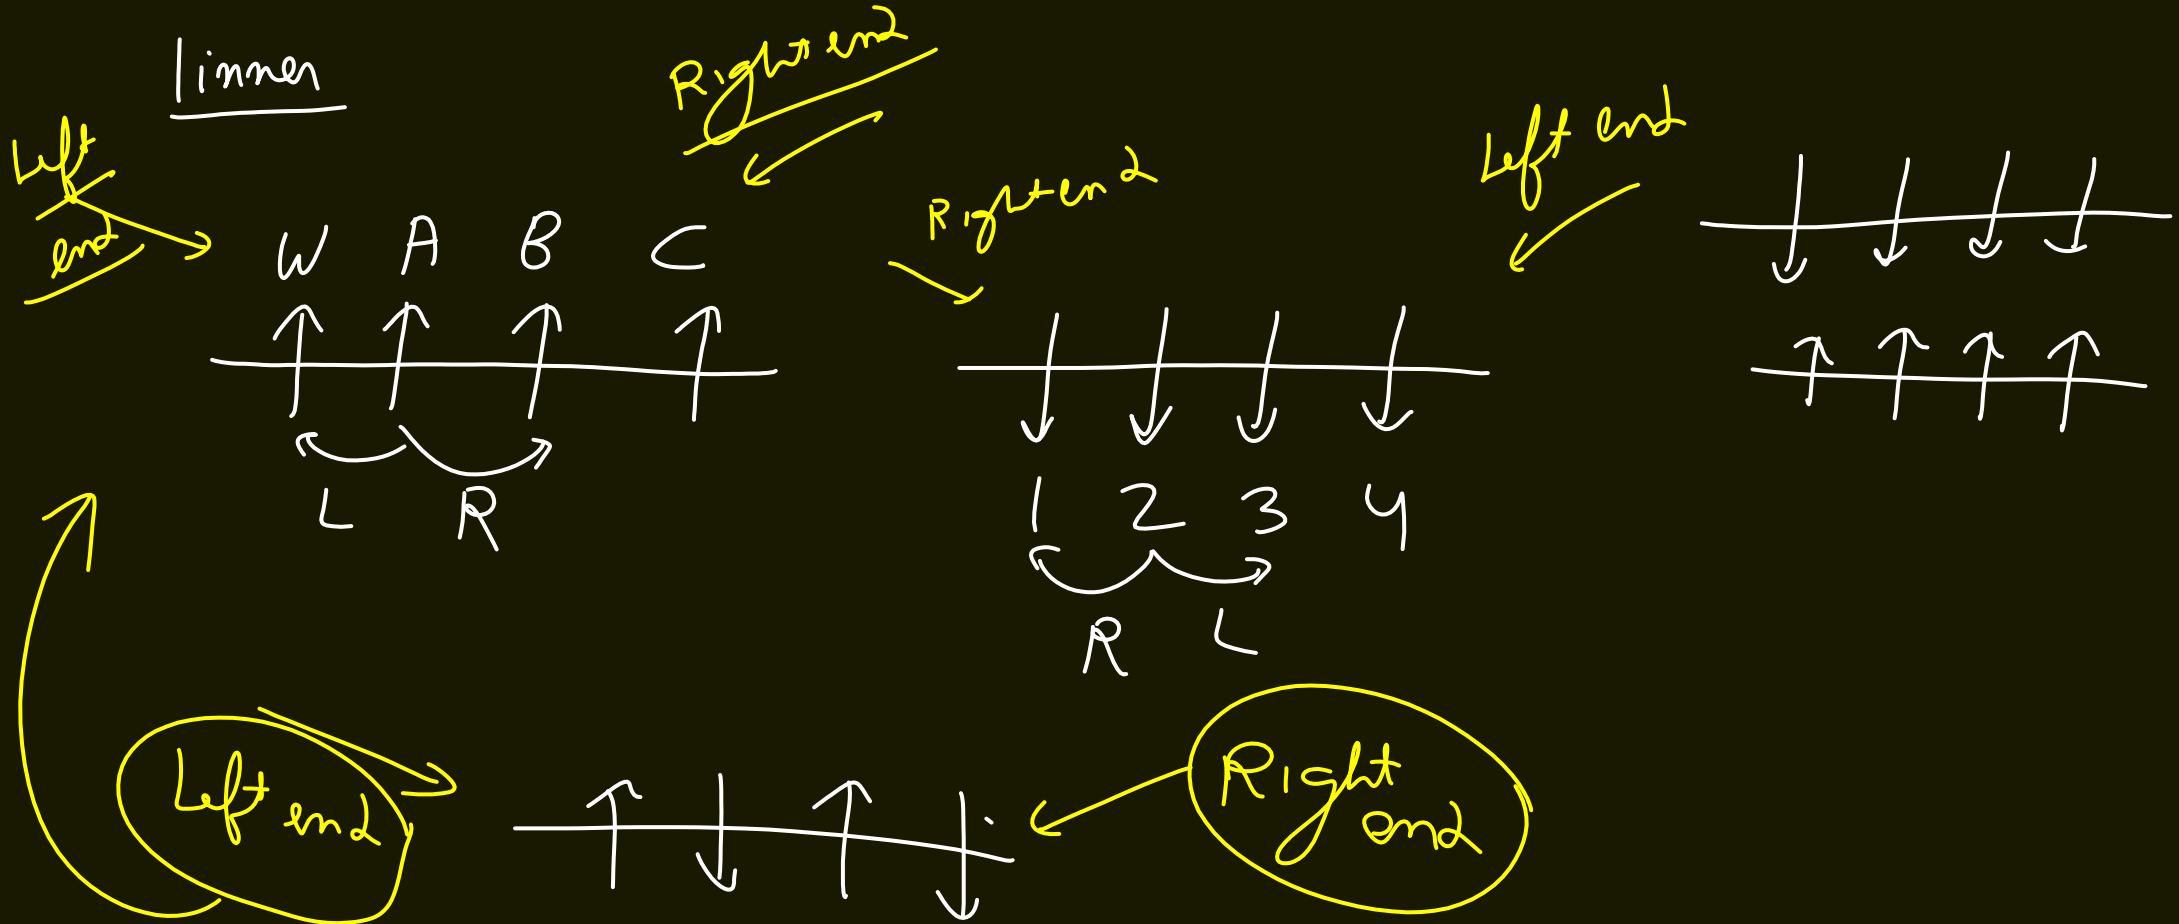 linner
Right end
Left end
Right end
Left end
W A B C
L R
1 2 3 4
R L
Left end
Right end